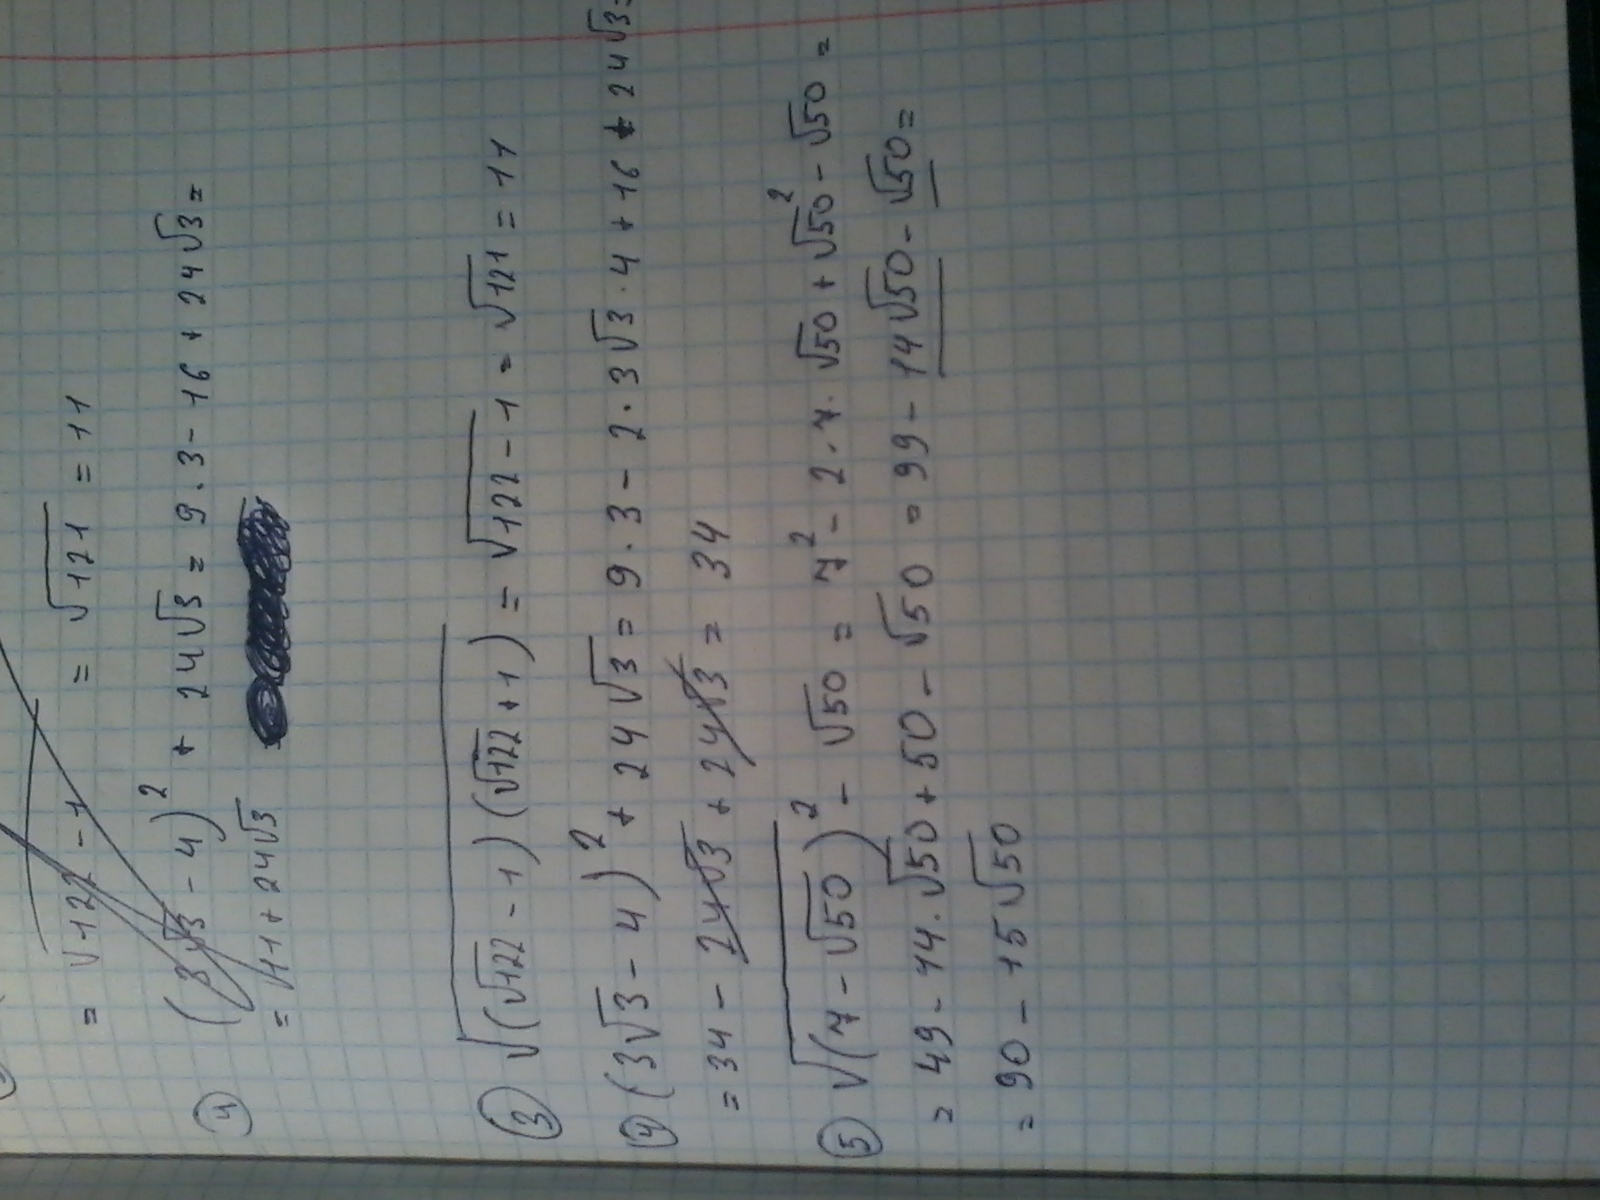 = √122 - 1 = √121 = 11
4) (3√3 - 4)² + 24√3 = 9·3 - 16 + 24√3 =
= 11 + 24√3
3) √((√122 - 1)(√122 + 1)) = √122 - 1 = √121 = 11
4) (3√3 - 4)² + 24√3 = 9·3 - 2·3√3·4 + 16 + 24√3 =
= 34 - 24√3 + 24√3 = 34
5) √(7 - √50)² - √50 = 7² - 2·7·√50 + √50² - √50 =
= 49 - 14·√50 + 50 - √50 = 99 - 14√50 - √50 =
= 90 - 15√50